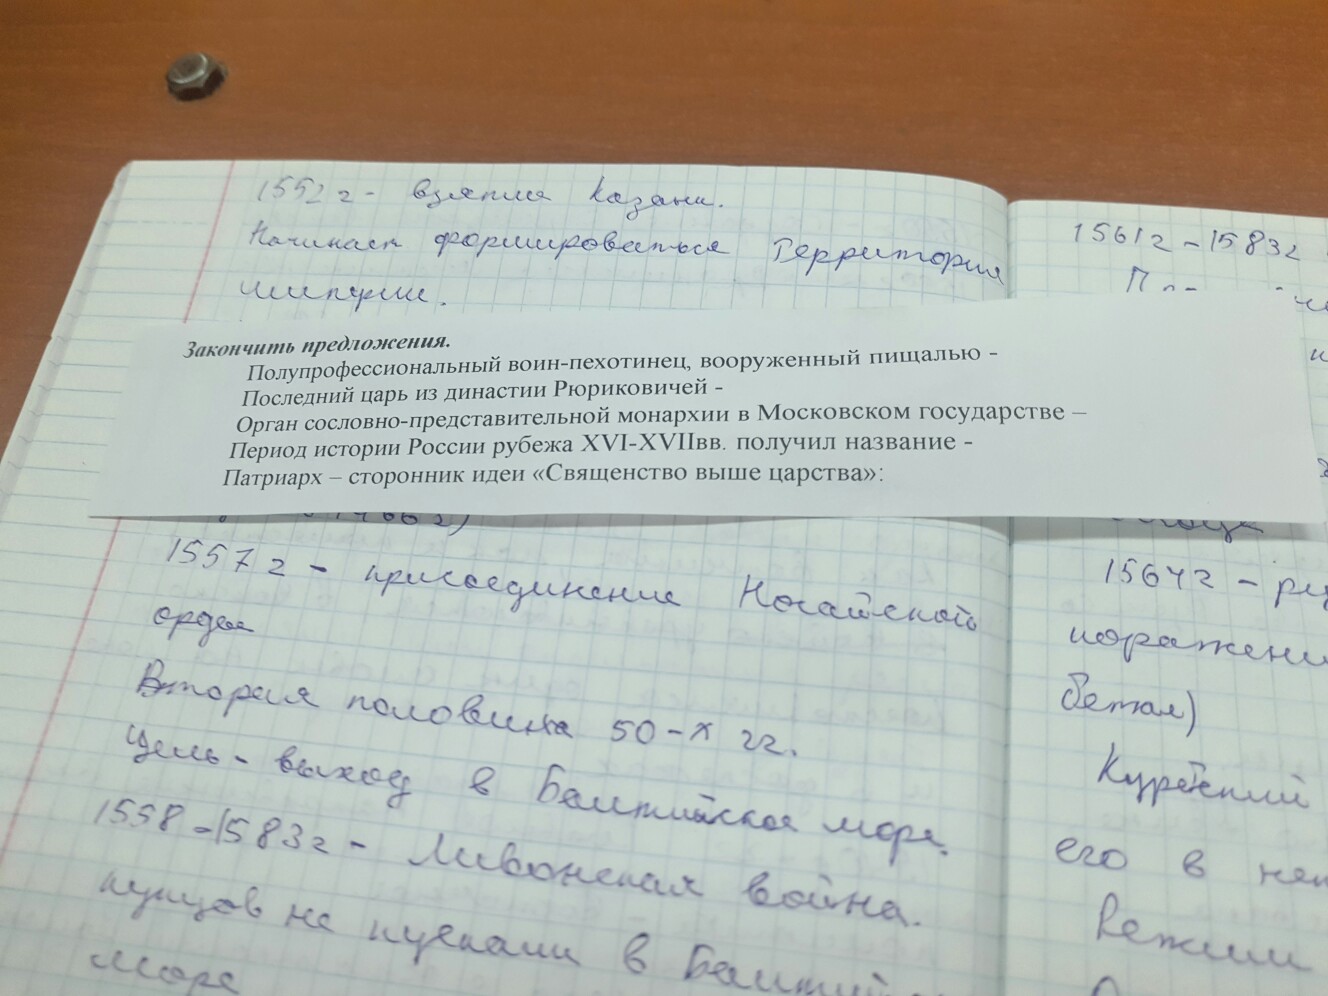 1552 г - взятие Казани.
Начинает формироваться Территория
импурии.
Закончить предложения.
Полупрофессиональный воин-пехотинец, вооруженный пищалью -
Последний царь из династии Рюриковичей -
Орган сословно-представительной монархии в Московском государстве –
Период истории России рубежа XVI-XVIIвв. получил название -
Патриарх – сторонник идеи «Священство выше царства»:
1557 г - присоединение Ногайской
орды
Вторая половина 50-х гг.
Цель - выход в Балтийское море.
1558-1583г - Ливонская война.
купцов не пускали в
море
1561г - 1583г
1564г -
бетал)
Курбский
его в
Режим